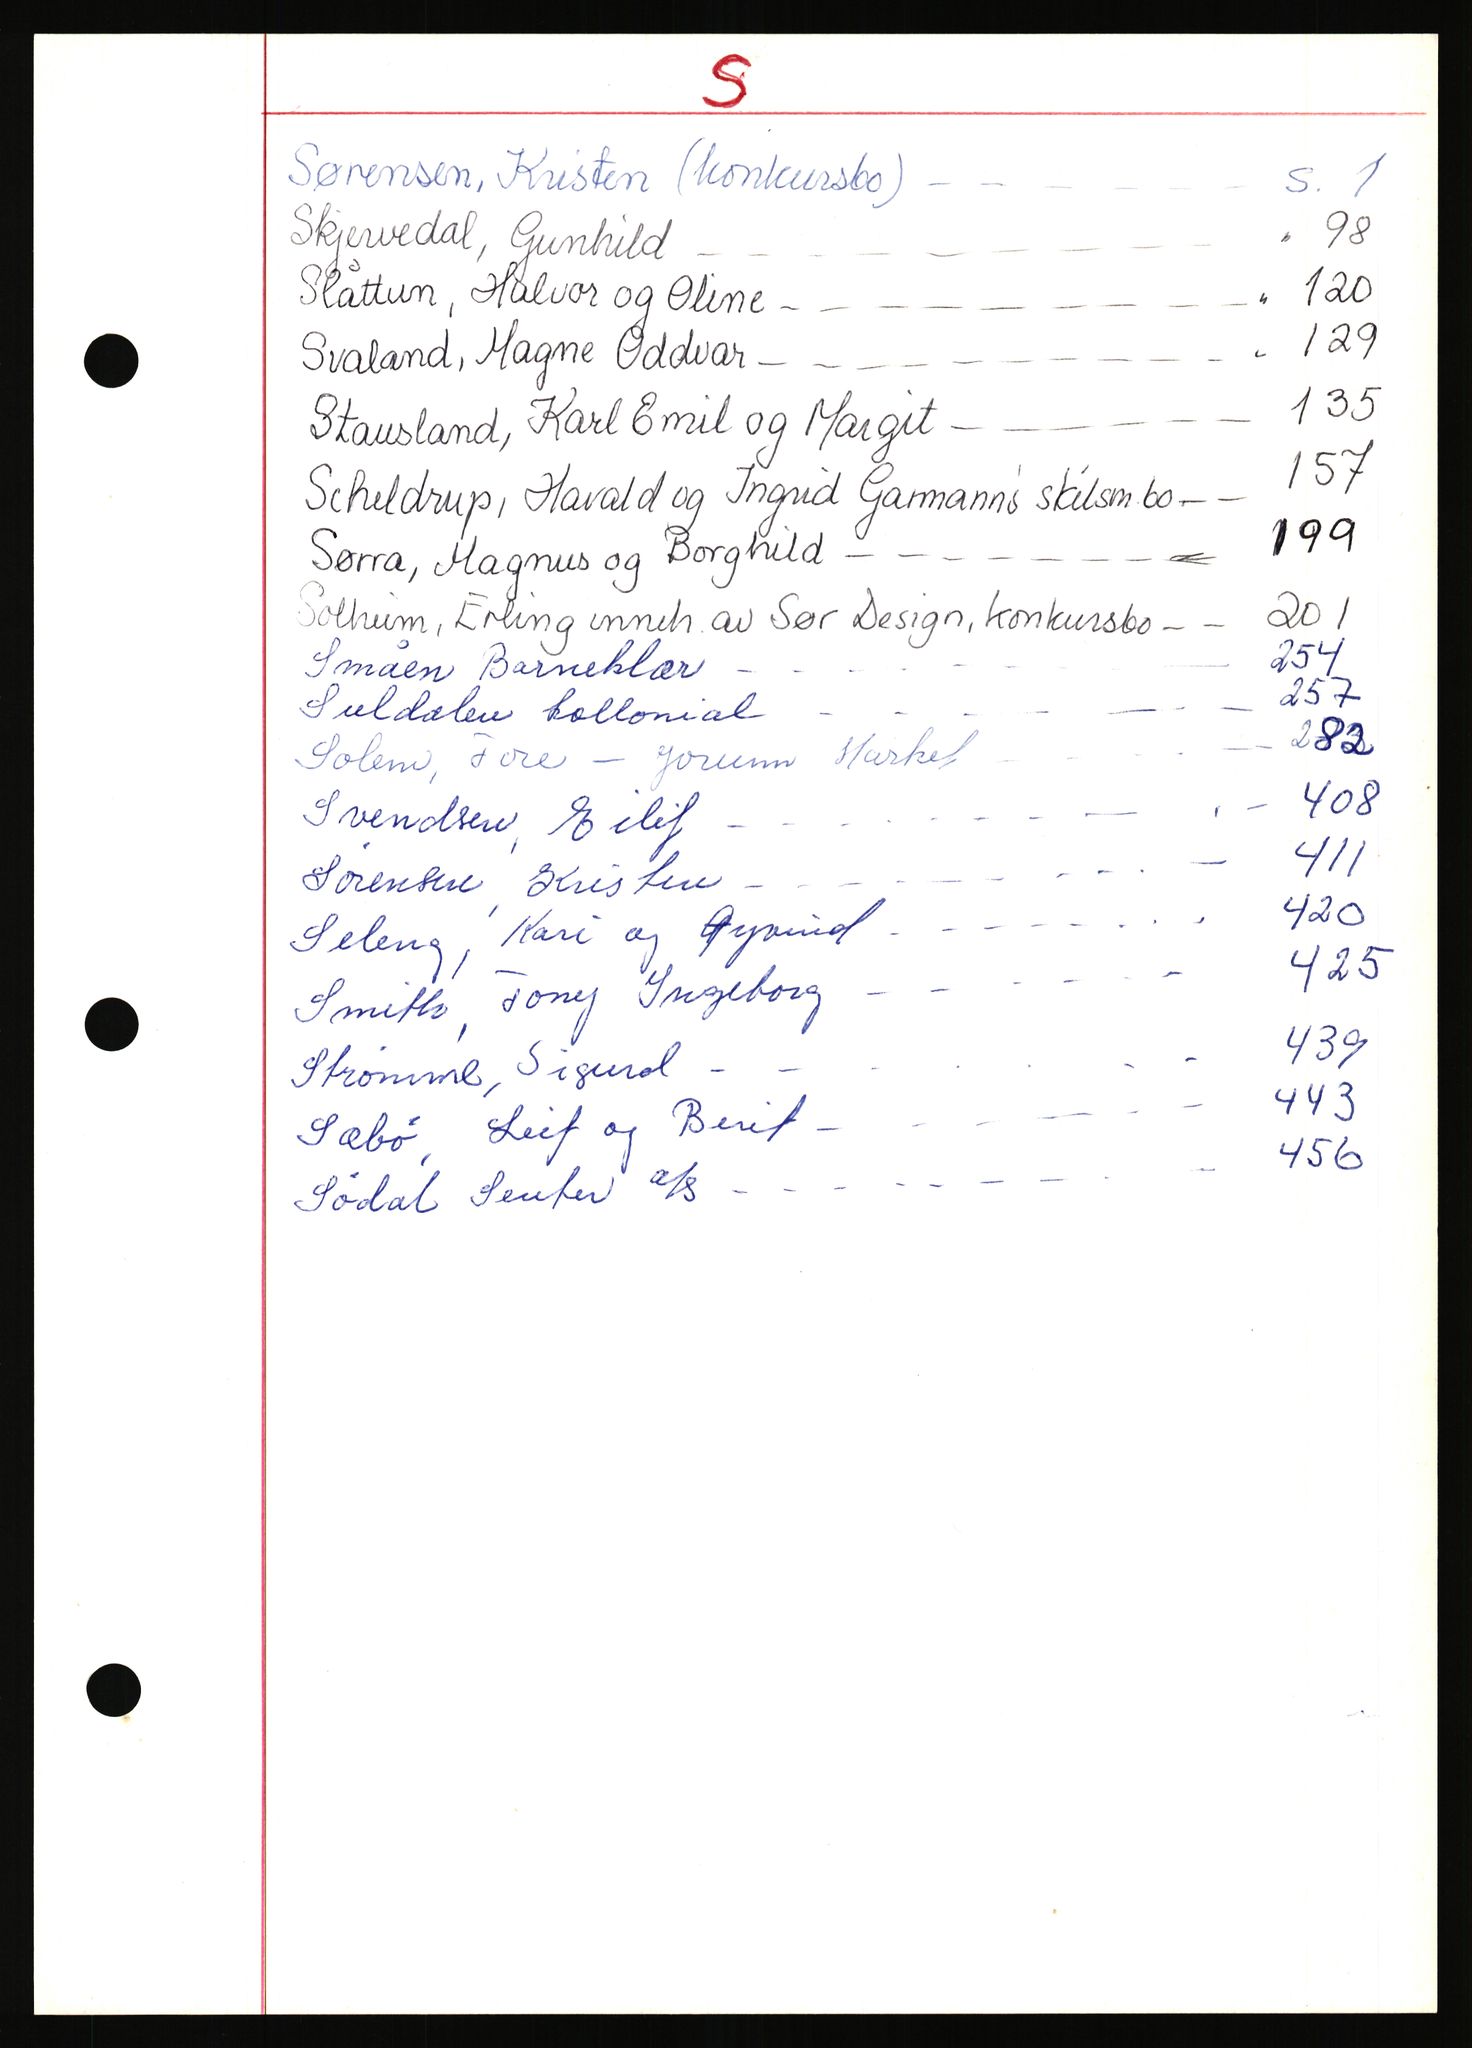 S
Sørensen, Kristen (konkursbo) - - - - - - s. 1
Skjervedal, Gunhild - - - - - - - - " 98
Slåttun, Halvor og Oline - - - - - - - - " 120
Svaland, Magne Oddvar - - - - - - - - " 129
Stausland, Karl Emil og Margit - - - - - - 135
Scheldrup, Harald og Ingrid Garmann's skilsm.bo - - 157
Sørra, Magnus og Borghild - - - - - - - 199
Solheim, Erling inneh. av Sør Design, konkursbo - - 201
Småen Barneklær - - - - - - - - 254
Suldalen kollonial - - - - - - - - 257
Solem, Tore - Jorunn - - - - 282
Svendsen, Eilif - - - - - - - - - 408
Sørensen, Kristen - - - - - - - - 411
Seleng, Kari og Øyvind - - - - - - - 420
Smith, Tony Ingeborg - - - - - - - 425
Strømme, Sigurd - - - - - - 439
Sæbø, Leif og Berit - - - - - - 443
Sødal Senter a/s - - - - - - - - 456